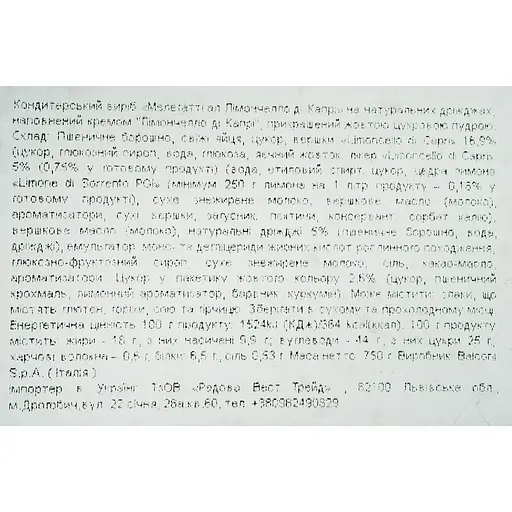 Кондитерський виріб «Мелегатті ал Лімончелло ді Капрі» на натуральних дріжджах,
наповнений кремом "Лімончелло ді Капрі", прикрашений жовтою цукровою пудрою.
Склад: Пшеничне борошно, свіжі яйця, цукор, вершки «Limoncello di Capri» 16,9%
(цукор, глюкозний сироп, вода, глюкоза, яєчний жовток, лікер «Limoncello di Capri»
5% (0,75% у готовому продукті) (вода, етиловий спирт, цукор, цедра лимона
«Limone di Sorrento PGI» (мінімум 250 г лимона на 1 літр продукту – 0,16% у
готовому продукті), сухе знежирене молоко, вершкове масло (молоко),
ароматизатори, сухі вершки, загусник: пектини, консервант: сорбат калію),
вершкове масло (молоко), натуральні дріжджі 5% (пшеничне борошно, вода,
дріжджі), емульгатор: моно- та дигліцериди жирних кислот рослинного походження,
глюкозно-фруктозний сироп, сухе знежирене молоко, сіль, какао-масло,
ароматизатори. Цукор у пакетику жовтого кольору 2,6% (цукор, пшеничний
крохмаль, лимонний ароматизатор, барвник куркумін). Може містити: злаки, що
містять глютен, горіхи, сою та гірчицю. Зберігати в сухому та прохолодному місці.
Енергетична цінність 100 г продукту: 1524кі (КДж)/364 kcal(ккал). 100 г продукту
містить: жири - 18 г, з них насичені 9,9 г; вуглеводи - 44 г, з них цукри 25 г,
харчові волокна – 0,6 г, білки 6,5 г, сіль 0,53 г. Маса нетто: 750 г. Виробник: Balconi
S.p.A. ( Італія ).
Імпортер в Україні: ТзОВ «Радова Вест Трейд» , 82100 Львівська обл.,
м.Дрогобич,вул. 22 січня, 26а,кв.60, тел. +380982490829